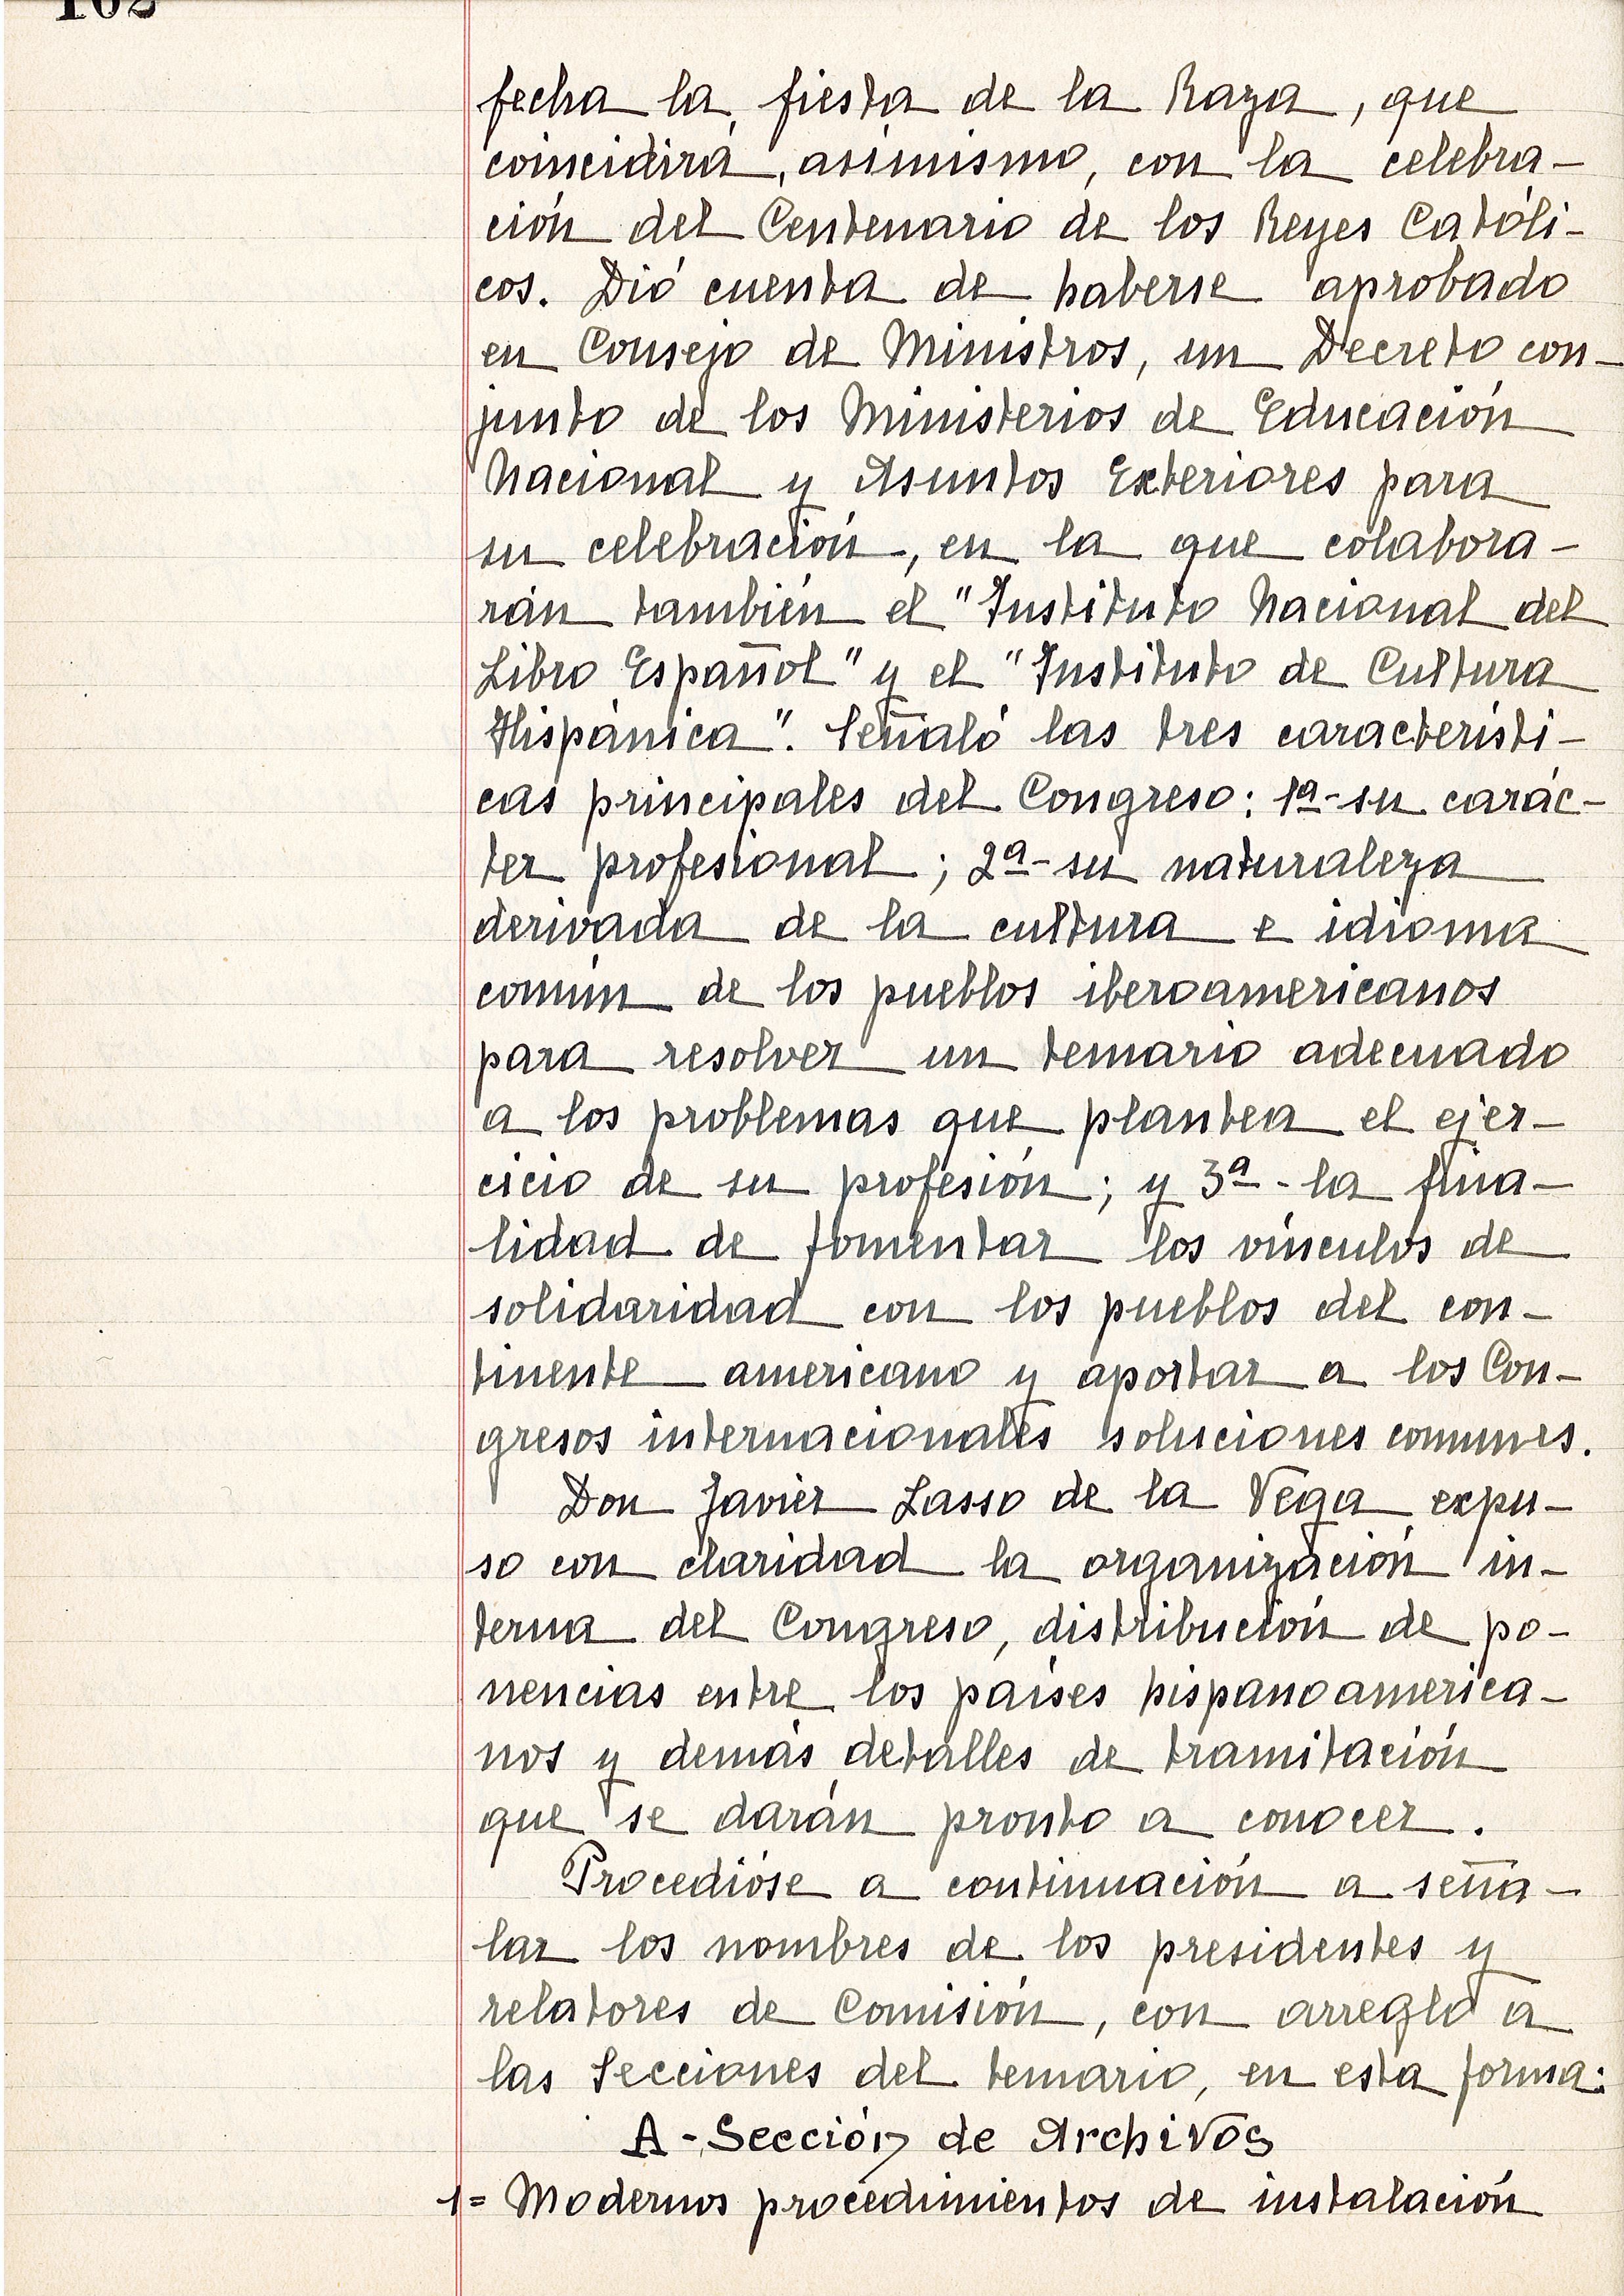 102
fecha la fiesta de la Raza, que
coincidirá, asimismo, con la celebra-
ción del Centenario de los Reyes Católi-
cos. Dió cuenta de haberse aprobado
en Consejo de Ministros, un Decreto con-
junto de los Ministerios de Educación
Nacional y Asuntos Exteriores para
su celebración, en la que colabora-
rán también el "Instituto Nacional del
Libro Español" y el "Instituto de Cultura
Hispánica". Señaló las tres característi-
cas principales del Congreso: 1ª- su carác-
ter profesional; 2ª- su naturaleza
derivada de la cultura e idioma
común de los pueblos iberoamericanos
para resolver un temario adecuado
a los problemas que plantea el ejer-
cicio de su profesión; y 3ª- la fina-
lidad de fomentar los vínculos de
solidaridad con los pueblos del con-
tinente americano y aportar a los Con-
gresos internacionales soluciones comunes.
Don Javier Lasso de la Vega expu-
so con claridad la organización in-
terna del Congreso, distribución de po-
nencias entre los países hispanoamerica-
nos y demás detalles de tramitación
que se darán pronto a conocer.
Procedióse a continuación a seña-
lar los nombres de los presidentes y
relatores de Comisión, con arreglo a
las Secciones del temario, en esta forma:
A - Sección de Archivos
1= Modernos procedimientos de instalación